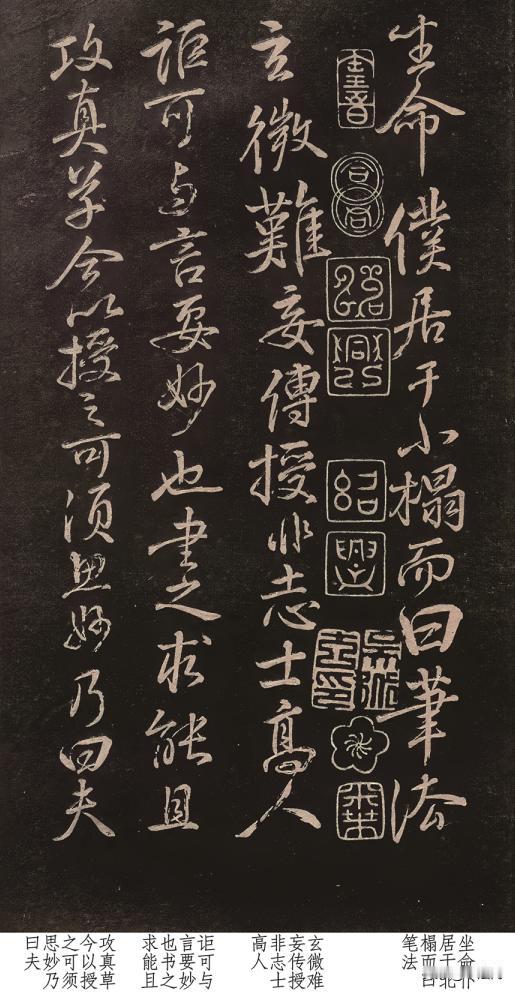 坐命僕居于小榻而曰筆法
合同
紹興
紹興
玄微難妄傳授非志士高人
詎可与言要妙也書之求能且
攻真草今以授之可須思妙乃曰夫
坐命仆
居于
榻而
笔法
玄微难
妄传授
非志士
高人
讵可与
言要妙
也书之
求能且
攻真草
今以授
之可须
思妙乃
曰夫